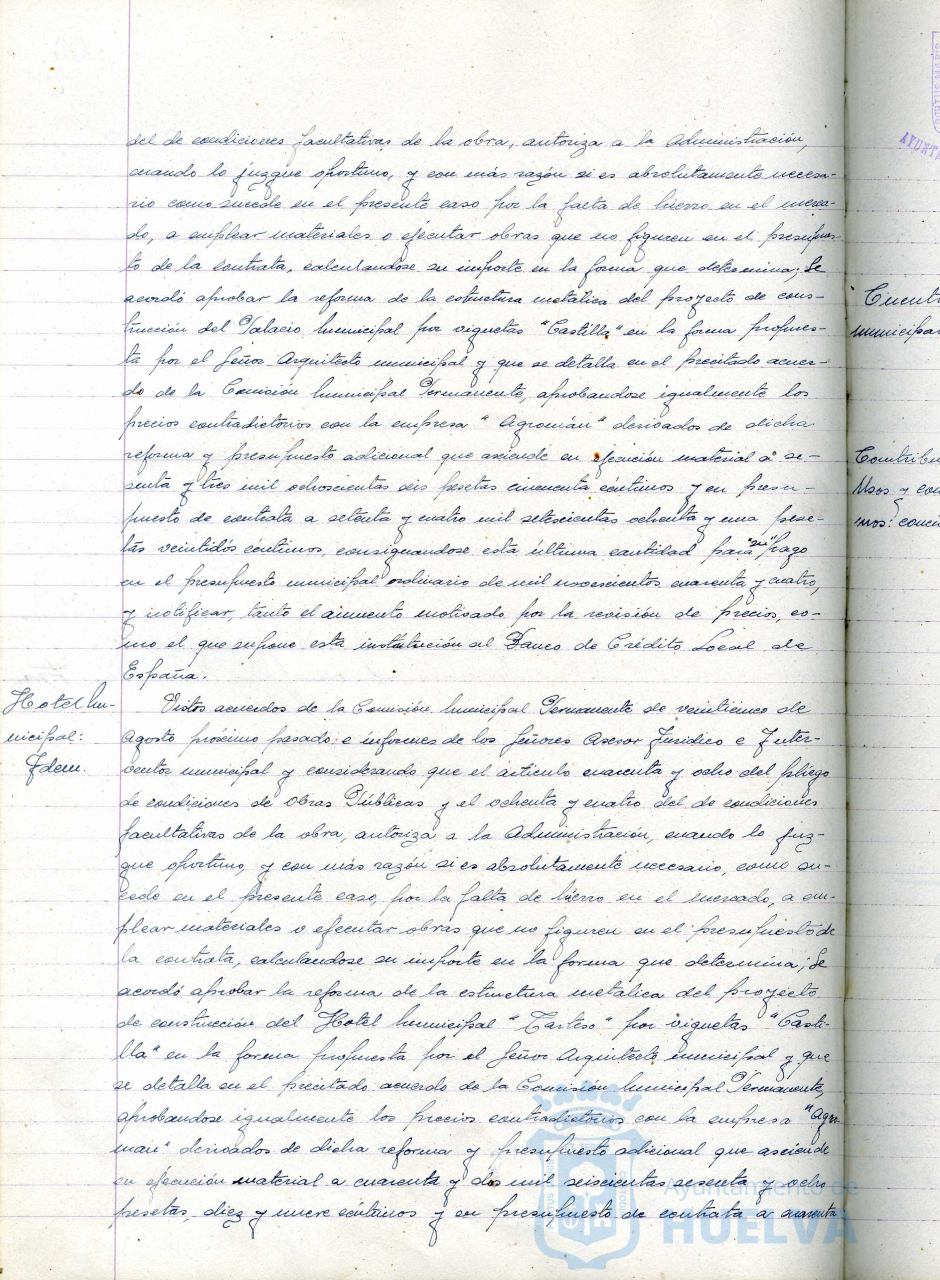 del de condiciones facultativas de la obra, autoriza a la Administración,
cuando lo juzgue oportuno, y con más razón si es absolutamente necesa-
rio como sucede en el presente caso por la falta de hierro en el merca-
do, a emplear materiales o ejecutar obras que no figuren en el presupues-
to de la contrata, calculandose su importe en la forma que determina; Se
acordó aprobar la reforma de la estructura metálica del proyecto de cons-
trucción del Palacio Municipal por viguetas "Castilla" en la forma propues-
ta por el Señor Arquitecto municipal y que se detalla en el precitado acuer-
do de la Comisión Municipal Permanente, aprobandose igualmente los
precios contradictorios con la empresa "Agromán" derivados de dicha
reforma y presupuesto adicional que asciende en ejecución material a se-
senta y tres mil ochoscientas seis pesetas cincuenta céntimos y en presu-
puesto de contrata a setenta y cuatro mil setescientas ochenta y una pese-
tas veintidós céntimos, consignandose esta última cantidad para "su" pago
en el presupuesto municipal ordinario de mil novescientos cuarenta y cuatro,
y notificar, tanto el aumento motivado por la revisión de precios, co-
mo el que supone esta instalación al Banco de Crédito Local de
España.
Hotel Mu-
nicipal:
Idem.
Vistos acuerdos de la Comisión Municipal Permanente de veinticinco de
Agosto próximo pasado e informes de los Señores Asesor Jurídico e Inter-
ventor municipal y considerando que el artículo cuarenta y ocho del pliego
de condiciones de Obras Públicas y el ochenta y cuatro del de condiciones
facultativas de la obra, autoriza a la Administración, cuando lo juz-
gue oportuno, y con más razón si es absolutamente necesario, como su-
cede en el presente caso, por la falta de hierro en el mercado, a em-
plear materiales o ejecutar obras que no figuren en el presupuesto de
la contrata, calculandose su importe en la forma que determina; Se
acordó aprobar la reforma de la estructura metálica del proyecto
de construcción del Hotel Municipal "Tartéso" por viguetas "Casti-
lla" en la forma propuesta por el Señor Arquitecto municipal y que
se detalla en el precitado acuerdo de la Comisión Municipal Permanente,
aprobandose igualmente los precios contradictorios con la empresa "Agro-
man" derivados de dicha reforma y presupuesto adicional que asciende
en ejecución material a cuarenta y dos mil seiscientas sesenta y ocho
pesetas, diez y nueve céntimos y en presupuesto de contrata a cuarenta
Ayuntamiento de
HUELVA